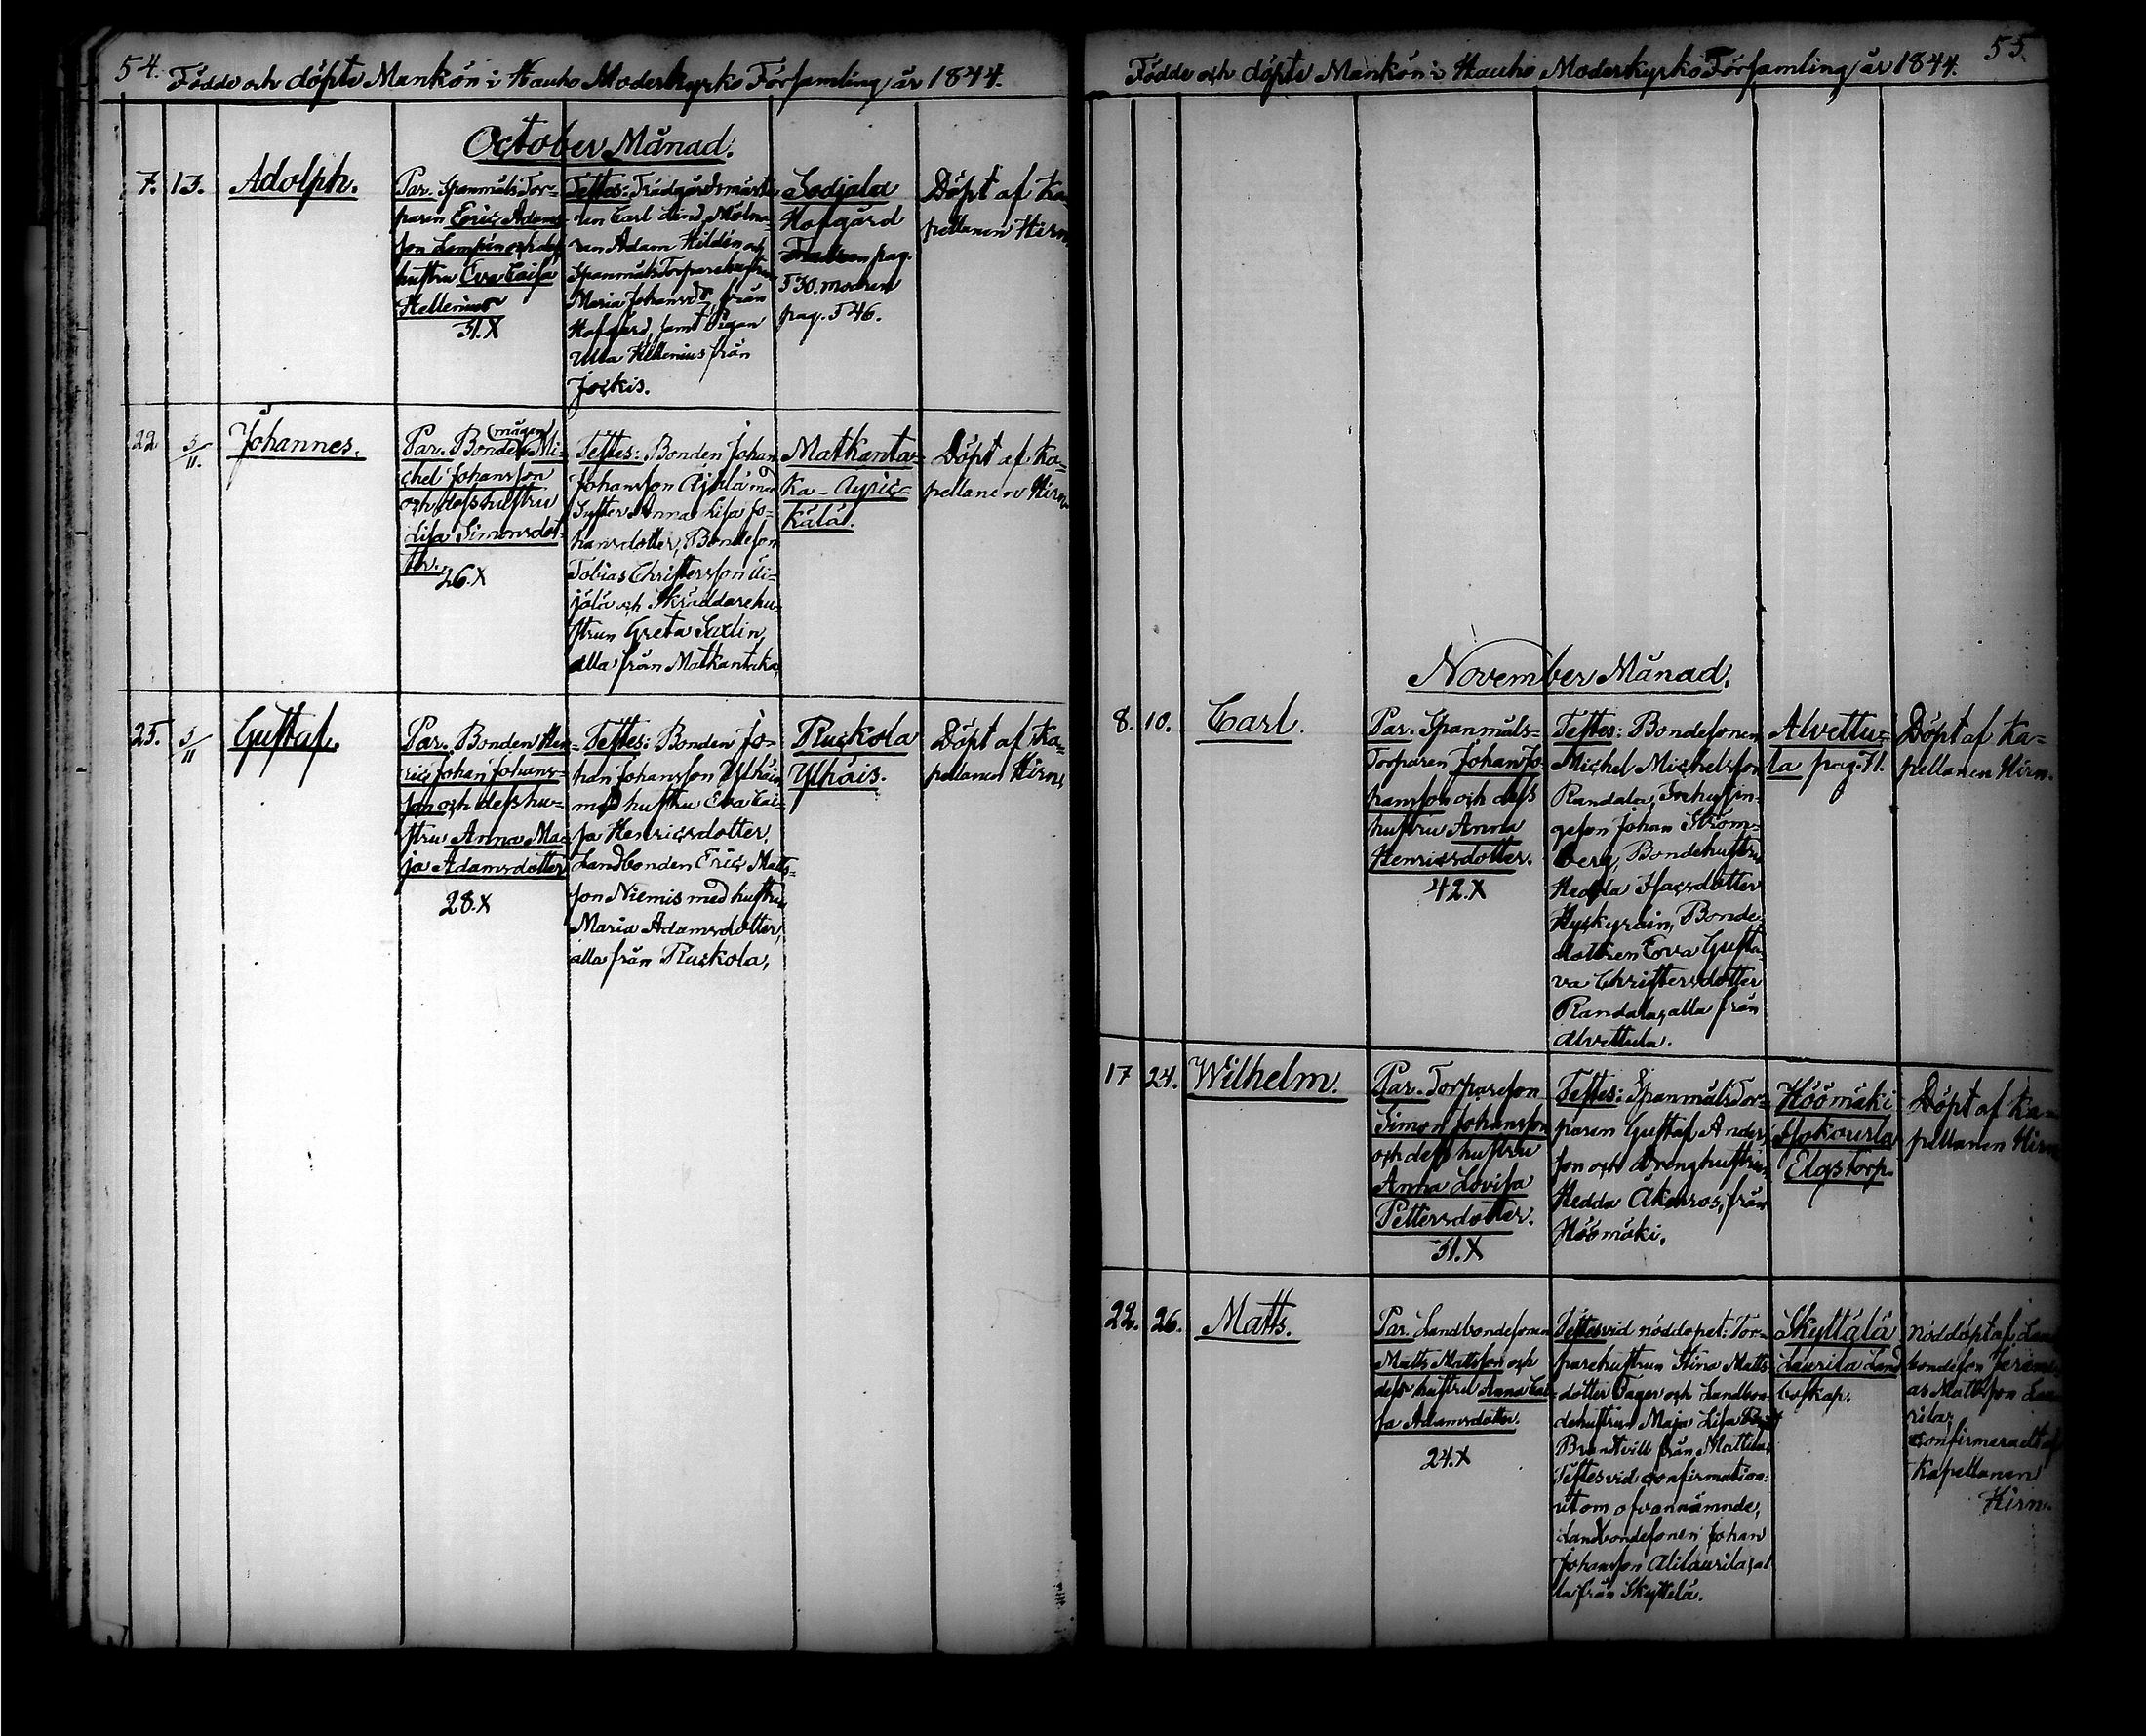 54. Födde och döpte Mankön i Hauho Moderkyrko Församling år 1844.
October Månad.
7. 13. Adolph.
Par. Spanmåls Tor-
paren Eric Adams-
son Lempén och dess
hustru Eva Caisa
Hellenius
31.X
Testes: Trädgårdsmästa-
ren Carl Lind, Mölna-
ren Adam Hildén och
Spanmåls Torparehustrun
Maria Johansdr från
Hofgård, samt Pigan
Ulla Hellenius från
Jockis.
Sodjala
Hofgård
pag.
530. modren
pag. 546.
Döpt af Ka-
pellanen Hirn.
22. 3/11. Johannes.
(mågen)
Par. Bonden Mi-
chel Johansson
och dess hustru
Lisa Simonsdot-
ter.
26.X
Testes: Bonden Johan
Johansson Äijälä med
Syster Anna Lisa Jo-
hansdotter, Bondeson
Tobias Christersson Äi-
jälä och Skräddarehu-
strun Greta Saxlin,
alla från Matkantaka,
Matkanta-
ka-Äyric-
kälä.
Döpt af Ka-
pellanen Hirn
25. 3/11 Gustaf.
Par. Bonden Hen-
ric Johan Johans-
son och dess hu-
stru Anna Ma-
ja Adamsdotter
28.X
Testes: Bonden Jo-
han Johansson Ylhäis
med hustru Eva Cai-
sa Henricsdotter,
Landbonden Eric Matts-
son Niemis med hustru
Maria Adamsdotter,
alla från Ruckola,
Ruckola
Ylhäis.
Döpt af Ka-
pellanen Hirn,
Födde och döpte Mankön i Hauho Moderkyrko Församling år 1844. 55.
November Månad.
8. 10. Carl.
Par. Spanmåls-
Torparen Johan Jo-
hansson och dess
hustru Anna
Henricsdotter.
42.X
Testes: Bondesonen
Michel Michelsson
Randala, Inhysin-
geson Johan Ström-
berg, Bondehustru
Hedda Isacsdotter
Hyskyräin, Bonde-
dottren Eova Gusta-
va Christersdotter
Randala, alla från
Alvettula.
Alvettu-
la pag. 71.
Döpt af Ka-
pellanen Hirn.
17 24. Wilhelm.
Par. Torpareson
Simon Johansson
och dess hustru
Anna Lovisa
Pettersdotter.
31.X
Testes: Spanmåls Tor-
paren Gustaf Anders-
son och Drenghustrun
Hedda Åkerros, från
Höömäki.
Höömäki
Elgstorp.
Döpt af Ka-
pellanen Hirn
22. 26. Matts.
Par. Landbondesonen
Matts Mattsson och
dess hustru Anna Cai-
sa Adamsdotter.
24.X
Testes vid nöddopet: Tor-
parehustrun Stina Matts-
dotter Tager och Landbon-
dehustrun Maja Lisa
Brandtvill från Mattila,
Testes vid confirmation:
utom ofvannämnde,
Landbondesonen Johan
Johansson Alilaurila, al-
la från Skyttälä.
Skyttälä
Laurila Land-
boskap.
Nöddöpt af Land-
bondeson Jeremi-
as Mattsson Lau-
rila,
confirmeradt af
Kapellanen
Hirn.